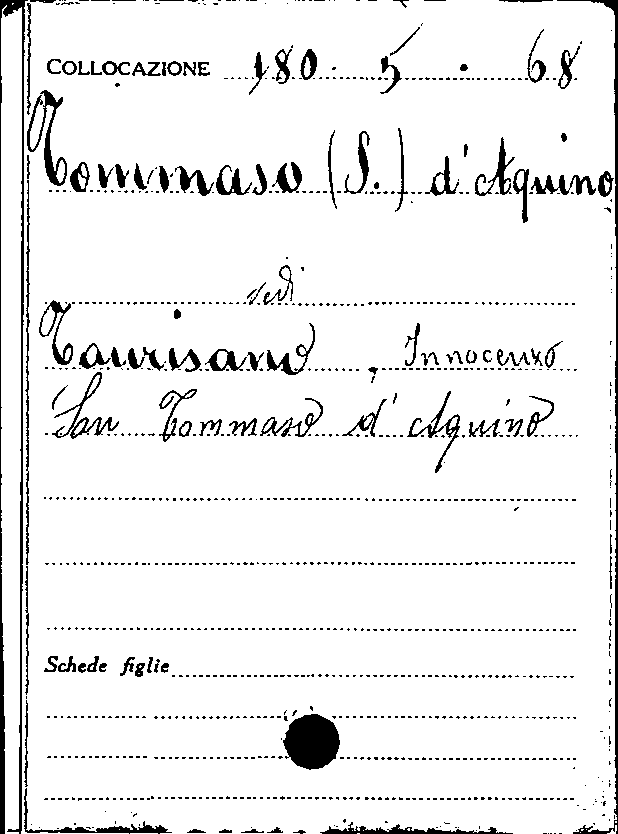 COLLOCAZIONE 180. 5. 68
Tommaso (S.) d'Aquino
vedi
Taurisano, Innocenzo
San Tommaso d'Aquino
Schede figlie